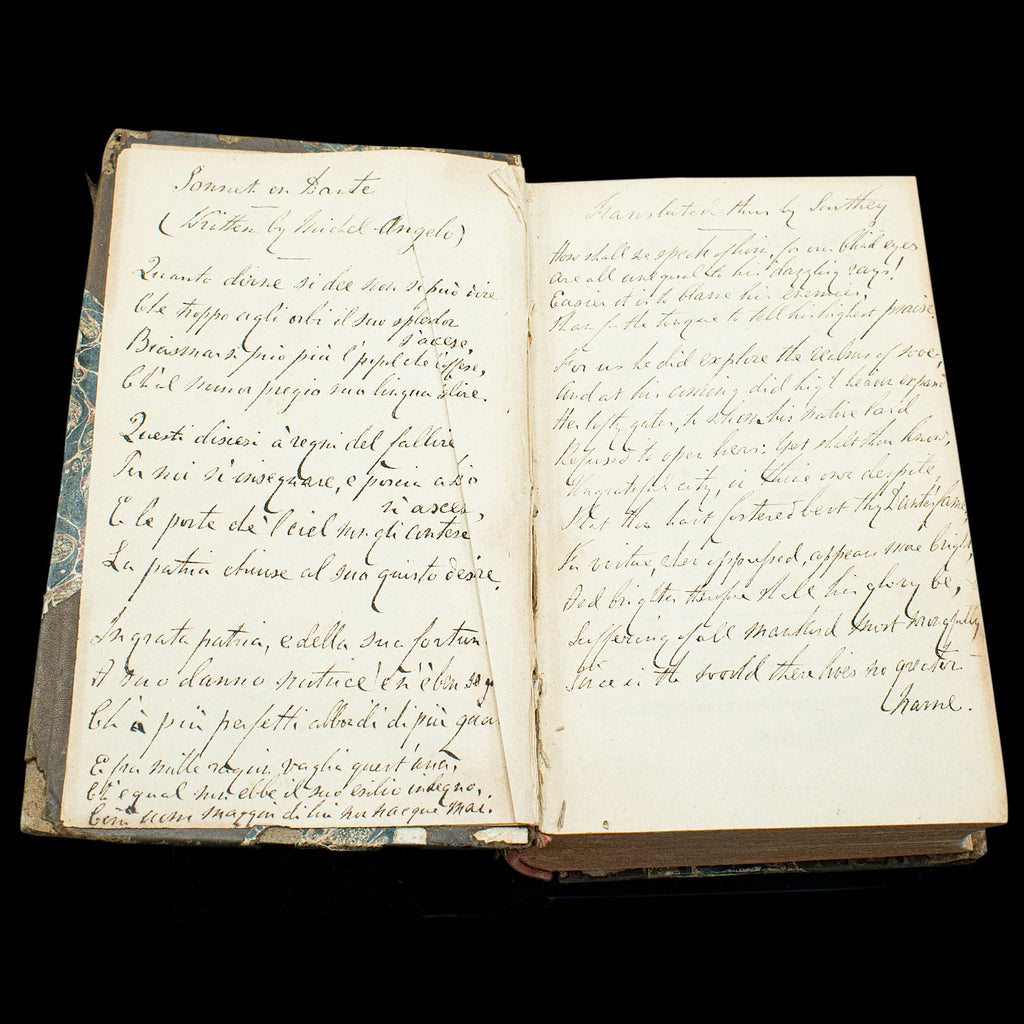 Sonnet on Dante
(Written by Michel-Angelo)
Quanto dirne si dee non si può dire
Che troppo agli orbi il suo splendor
s'accese,
Biasmar si può più l' popol che l'offese,
Ch'al minor pregio sua lingua
Questi discese à regni del fallire
Per noi s'insegnare, e poscia a Dio
n'ascese,
E le porte che l'ciel non gli contese
La patria chiuse al suo giusto desire.
Ingrata patria, e della sua fortun
A suo danno nutrice e n'è ben se
Ch' à più perfetti abbondi di più guai
E fra mille ragion vaglia quest'una,
Ch'egual non ebbe il suo esilio indegno,
Com' uom maggior di lui non nacque mai.
Translated thus by Southey
How shall we speak of him, for our blind eyes
are all unequal to his dazzling rays!
Easier it is to blame his enemies,
than for the tongue to tell his highest praise.
For us he did explore the realms of woe;
And at his coming did high heaven expand
Her lofty gates, to whom his native land
Refused to open hers: yet shalt thou know,
Ungrateful city, in thine own despite,
That thou hast fostered best thy Dante's fame;
For virtue, when oppressed, appears more bright,
And brighter therefore shall his glory be,
Suffering of all mankind most wrongfully
Since in the world there lives no greater
name.